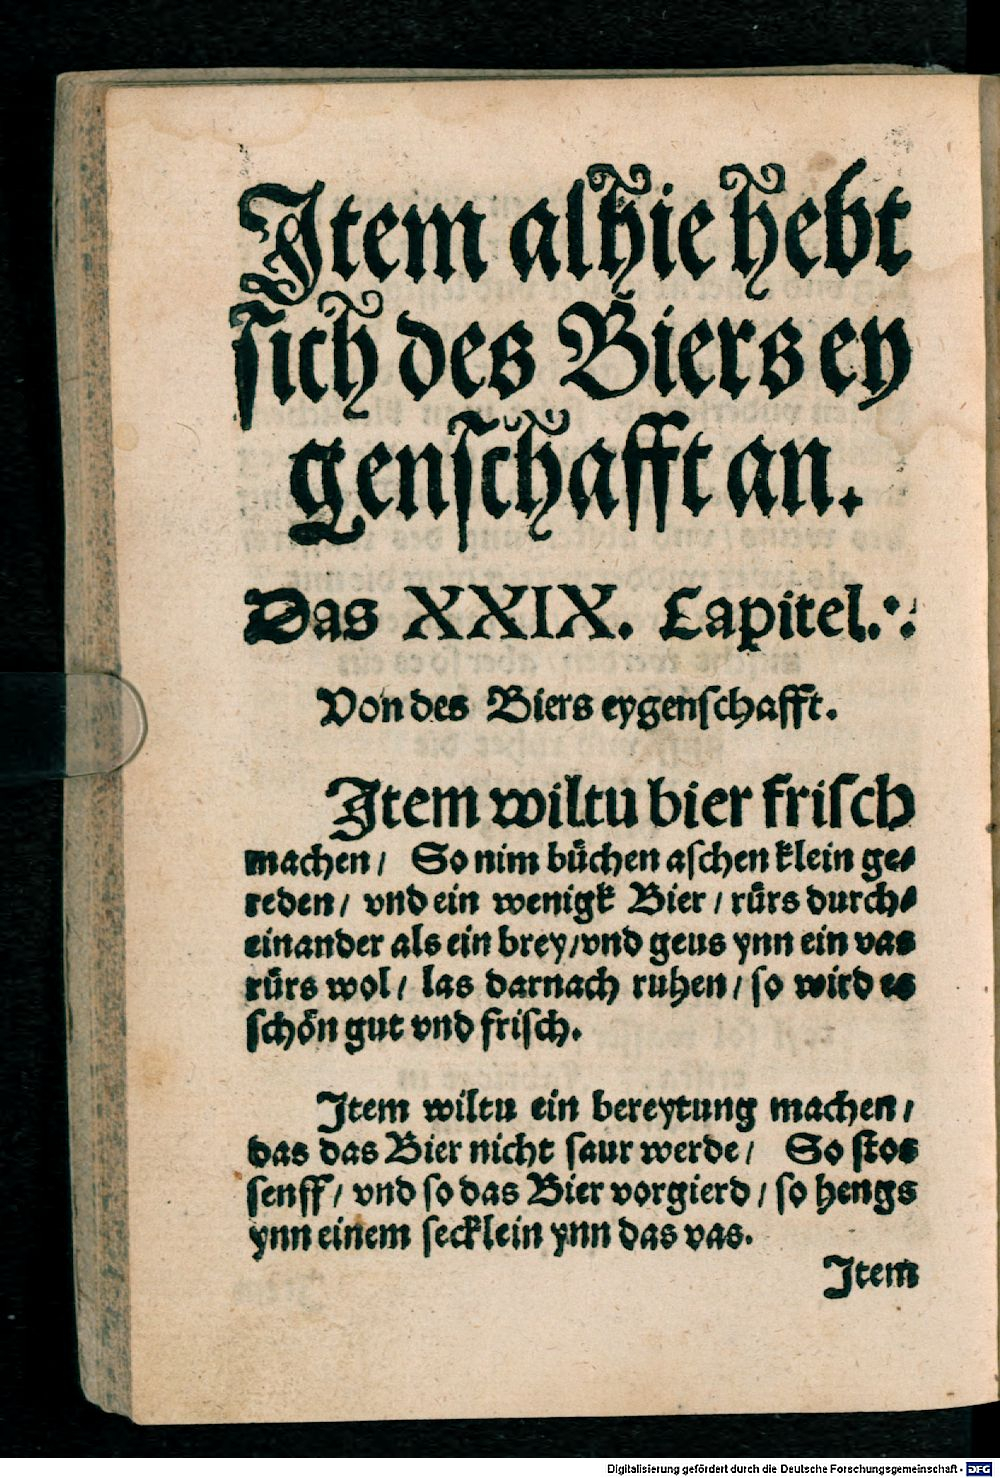 Item alhie hebt
sich des Biers ey
genschafft an.
Das XXIX. Capitel.
Von des Biers eygenschafft.
Item wiltu bier frisch
machen / So nim buͤchen aschen klein ge⸗
reden / vnd ein wenigk Bier / ruͤrs durch⸗
einander als ein brey / vnd geus ynn ein vas
ruͤrs wol / las darnach ruhen / so wird es
schoͤn gut vnd frisch.
Item wiltu ein bereytung machen /
das das Bier nicht saur werde / So stos
senff / vnd so das Bier vorgierd / so hengs
ynn einem secklein ynn das vas.
Item
Digitalisierung gefördert durch die Deutsche Forschungsgemeinschaft - DFG